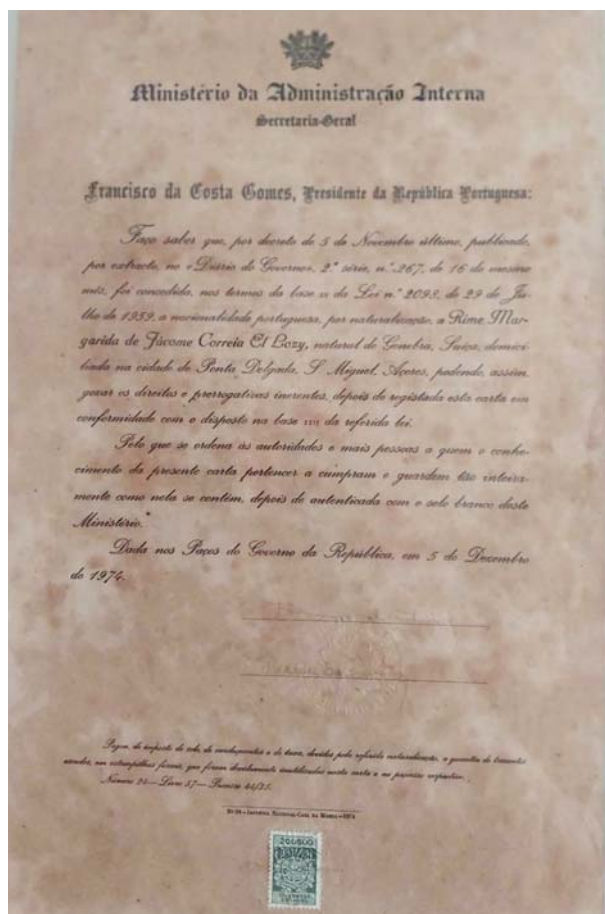 Ministério da Administração Interna
Secretaria-Geral
Francisco da Costa Gomes, Presidente da República Portuguesa:
Faço saber que, por decreto de 5 de Novembro último, publicado,
por extracto, no «Diário do Governo», 2.ª série, n.º 267, de 16 do mesmo
mês, foi concedida, nos termos da base XII da Lei n.º 2098, de 29 de Ju-
lho de 1959, a nacionalidade portuguesa, por naturalização, a Rime Mar-
garida de Jácome Correia El Lozy, natural de Genebra, Suíça, domici-
liada na cidade de Ponta Delgada, S. Miguel, Açores, podendo, assim,
gozar os direitos e prerrogativas inerentes, depois de registada esta carta em
conformidade com o disposto na base da referida lei.
Pelo que se ordena às autoridades e mais pessoas a quem o conhe-
cimento da presente carta pertencer a cumpram e guardem tão inteira-
mente como nela se contém, depois de autenticada com o selo branco deste
Ministério.
Dada nos Paços do Governo da República, em 5 de Dezembro
de 1974.
Pagou, de imposto do selo, de emolumentos e de taxa, devidos pela referida naturalização, a quantia de trezentos
escudos, em estampilhas fiscais, que foram devidamente inutilizadas nesta carta e no processo respectivo.
Número 24 — Livro 57 — Processo 44/35.
Imprensa Nacional-Casa da Moeda — 1974
200$00